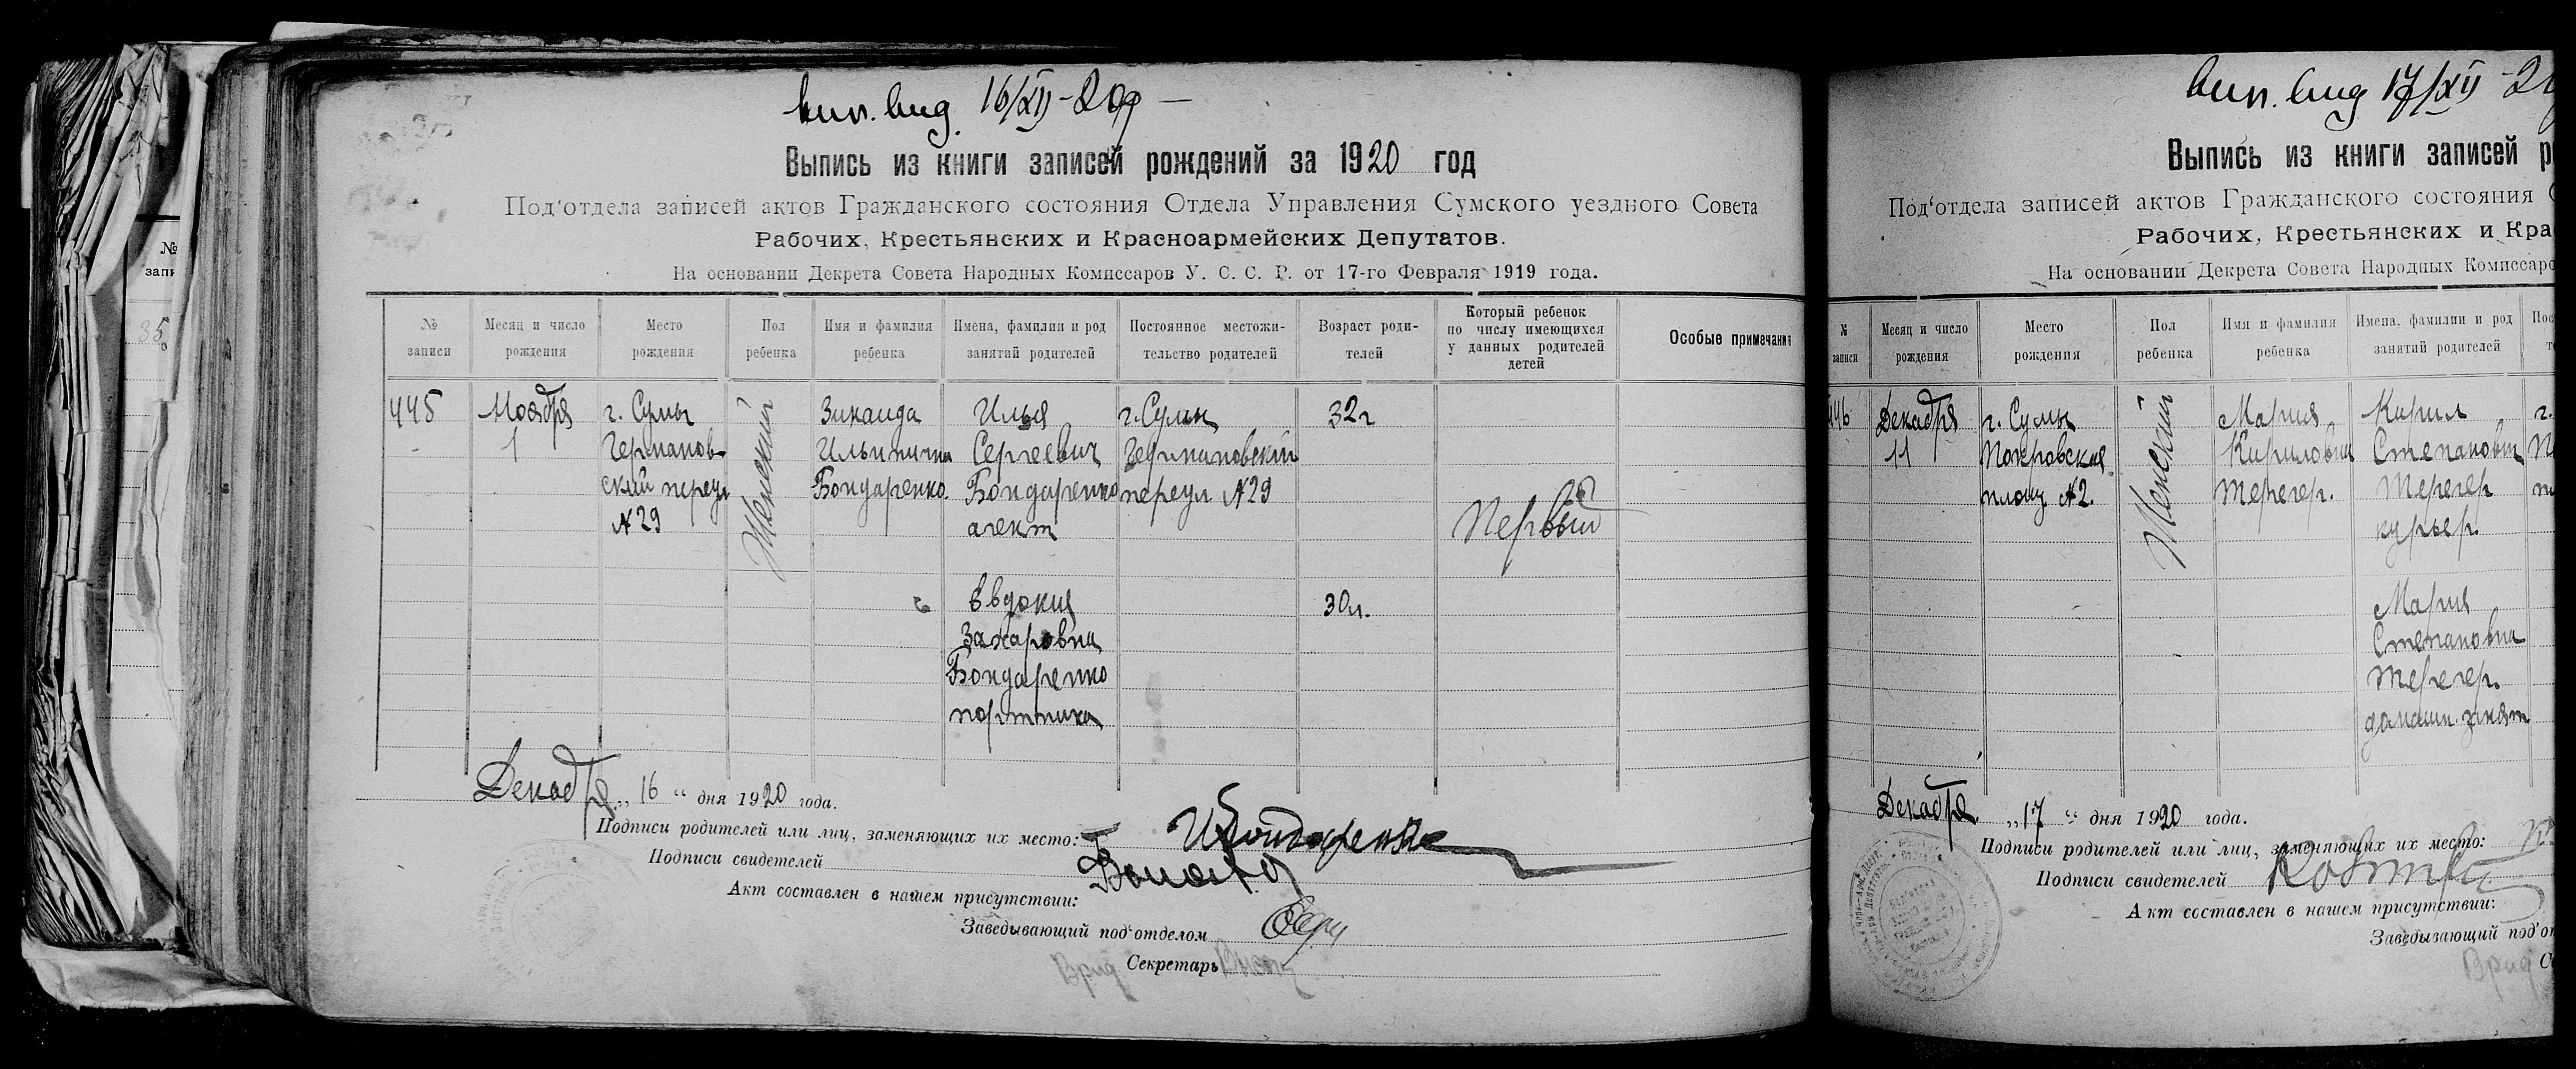 вып. выд. 16/XII-20 г
Выпись из книги записей рождений за 1920 год
Под'отдела записей актов Гражданского состояния Отдела Управления Сумского уездного Совета
Рабочих, Крестьянских и Красноармейских Депутатов.
На основании Декрета Совета Народных Комиссаров У. С. С. Р. от 17-го Февраля 1919 года.
№ записи
Месяц и число рождения
Место рождения
Пол ребенка
Имя и фамилия ребенка
Имена, фамилии и род занятий родителей
Постоянное местожительство родителей
Возраст родителей
Который ребенок по числу имеющихся у данных родителей детей
Особые примечания
445
Ноября
1
г. Сумы
Германов-
ский переул
№ 29
Женский
Зинаида
Ильинична
Бондаренко.
Илья
Сергеевич
Бондаренко
агент
г. Сумы
Германовский
переул № 29
32 г
Первый
Евдокия
Захаровна
Бондаренко
портниха
30 л.
Декабря „ 16 “ дня 1920 года.
Подписи родителей или лиц, заменяющих их место: ИБондаренко
Подписи свидетелей
Акт составлен в нашем присутствии:
Заведывающий под'отделом
Врид Секретарь
№
запи
35
вып. выд 17/XII-20
Выпись из книги записей р
Под'отдела записей актов Гражданского состояния
Рабочих, Крестьянских и Кра
На основании Декрета Совета Народных Комиссаро
№ записи
Месяц и число рождения
Место рождения
Пол ребенка
Имя и фамилия ребенка
Имена, фамилии и род занятий родителей
446
Декабря
11
г. Сумы
Покровская
площ № 2.
Женский
Мария
Кириловна
Терегер.
Кирил
Степанович
Терегер
курьер.
г.
Мария
Степановна
Терегер.
домашн. занят.
Декабря „ 17 “ дня 1920 года.
Подписи родителей или лиц, заменяющих их место:
Подписи свидетелей
Акт составлен в нашем присутствии:
Заведывающий под'от
Врид С